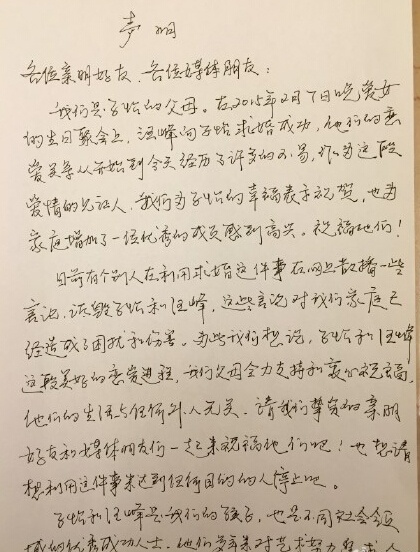 声明
各位亲朋好友、各位媒体朋友：
我们是子怡的父母。在2015年2月7日晚爱女
的生日聚会上，汪峰向子怡求婚成功，他们的恋
爱关系从开始到今天经历了许多的不易，作为这段
爱情的见证人，我们为子怡的幸福表示祝贺，也为
家庭增加了一位优秀的成员感到高兴。祝福他们！
目前有个别人在利用求婚这件事在网上散播一些
言论，诋毁子怡和汪峰，这些言论对我们家庭已
经造成了困扰和伤害。为此我们想说，子怡和汪峰
这段美好的恋爱进程，我们父母全力支持和衷心祝福，
他们的生活与任何外人无关。请我们挚爱的亲朋
好友和媒体朋友们一起来祝福他们吧！也想请
想利用这件事来达到任何目的的人停止吧。
子怡和汪峰是我们的孩子，也是不同社会
域的优秀成功人士，他们